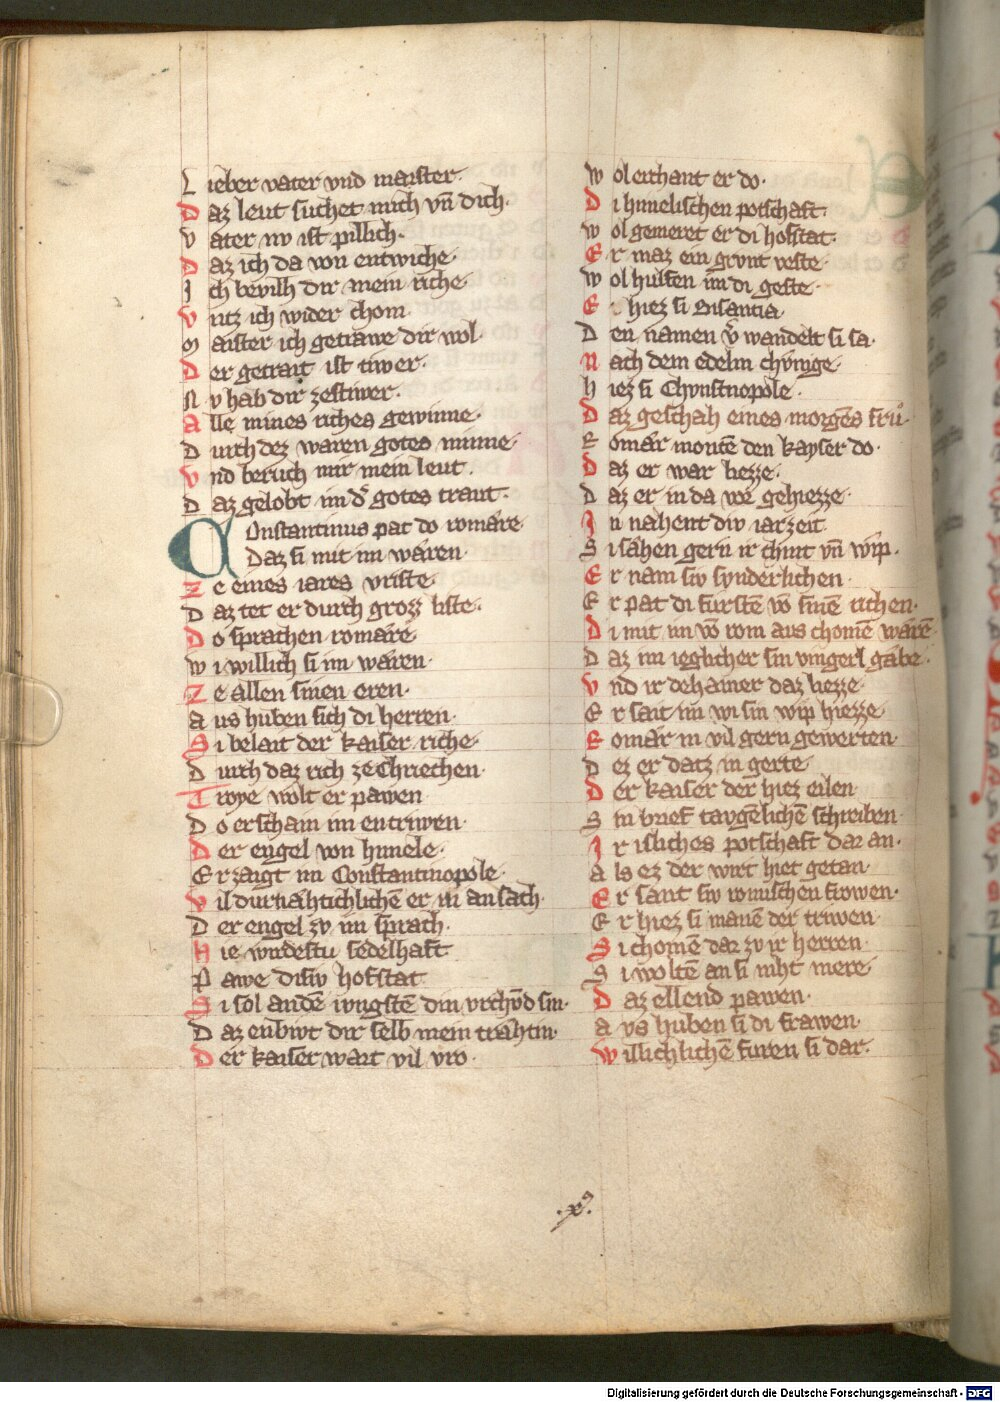 Lieber vater vnd maister·
Daz leut suchet mich vn̄ dich·
Vater nv ist pillich·
Daz ich da von entwiche·
Ich bevilh dir mein riche·
Vntz ich wider chom·
Maister ich getrawe dir wol·
Der getrait ist tiwer·
Nv hab dir ze stiwer·
Alle mines riches gewinne·
Durch dez waren gotes minne·
Vnd beruch mir mein leut·
Daz gelobt im d̾ gotes traut·
Constantinus pat do romære
Daz si mit im wæren·
Ze eines iares vriste·
Daz tet er durch grozz liste·
Do sprachen romære·
Wi willich si im wæren·
Ze allen sinen eren·
Aus huben sich di herren·
Si belait der kaiser riche·
Durch daz rich ze Chriechen·
Troye wolt er pawen
Do erschain im entriwen·
Der engel von himele·
Er zaigt im Constantinopole·
Vil durnæhtichlichē er in an sach·
Der engel zv im sprach·
Hie wirdestu sedelhaft
Pawe disiv hofstat
Si sol an dē iungstē din vrchvd sin·
Daz enbivt dir selb mein træhtin·
Der kaiser wart vil vro·
Wol erchant er do·
Di himelischen potschaft·
Wol gemeret er di hofstat·
Er maz ein grvnt veste·
Wol hulfen im di geste·
Er hiez si Bisantia·
Den namen v̾wandelt si sa·
Nach dem edelm chvnige·
Hiez si Chvnstnopole·
Daz geschah eines morgēs frů·
Romær montē den kayser do·
Daz er war liezze·
Daz er in da vor gehiezze·
In nahent div iarzeit·
Si sæhen gern ir chint vn̄ wip·
Er nam siv synderlichen·
Er pat di furstē vō sinē richen·
Di mit im vō rom aus chomē wærē·
Daz im ieglicher sin vingerl gæbe·
Vnd ir dehainer daz liezze·
Er sait im wi sin wip hiezze·
Romær in vil gern gewerten·
Dez er datz in gerte·
Der kaiser der hiez eilen
Sin brief taugēlichē schreiben·
Ir isliches potschaft dar an·
Als ez der wirt hiet getan·
Er sant siv romischen frowen·
Er hiez si manē der triwen·
Si chomē dar zv ir herren·
Si woltē an si niht mere·
Daz ellend pawen·
Avs huben si di frawen·
Willichlichē furen si dar·
·xꝰ·
Digitalisierung gefördert durch die Deutsche Forschungsgemeinschaft · DFG